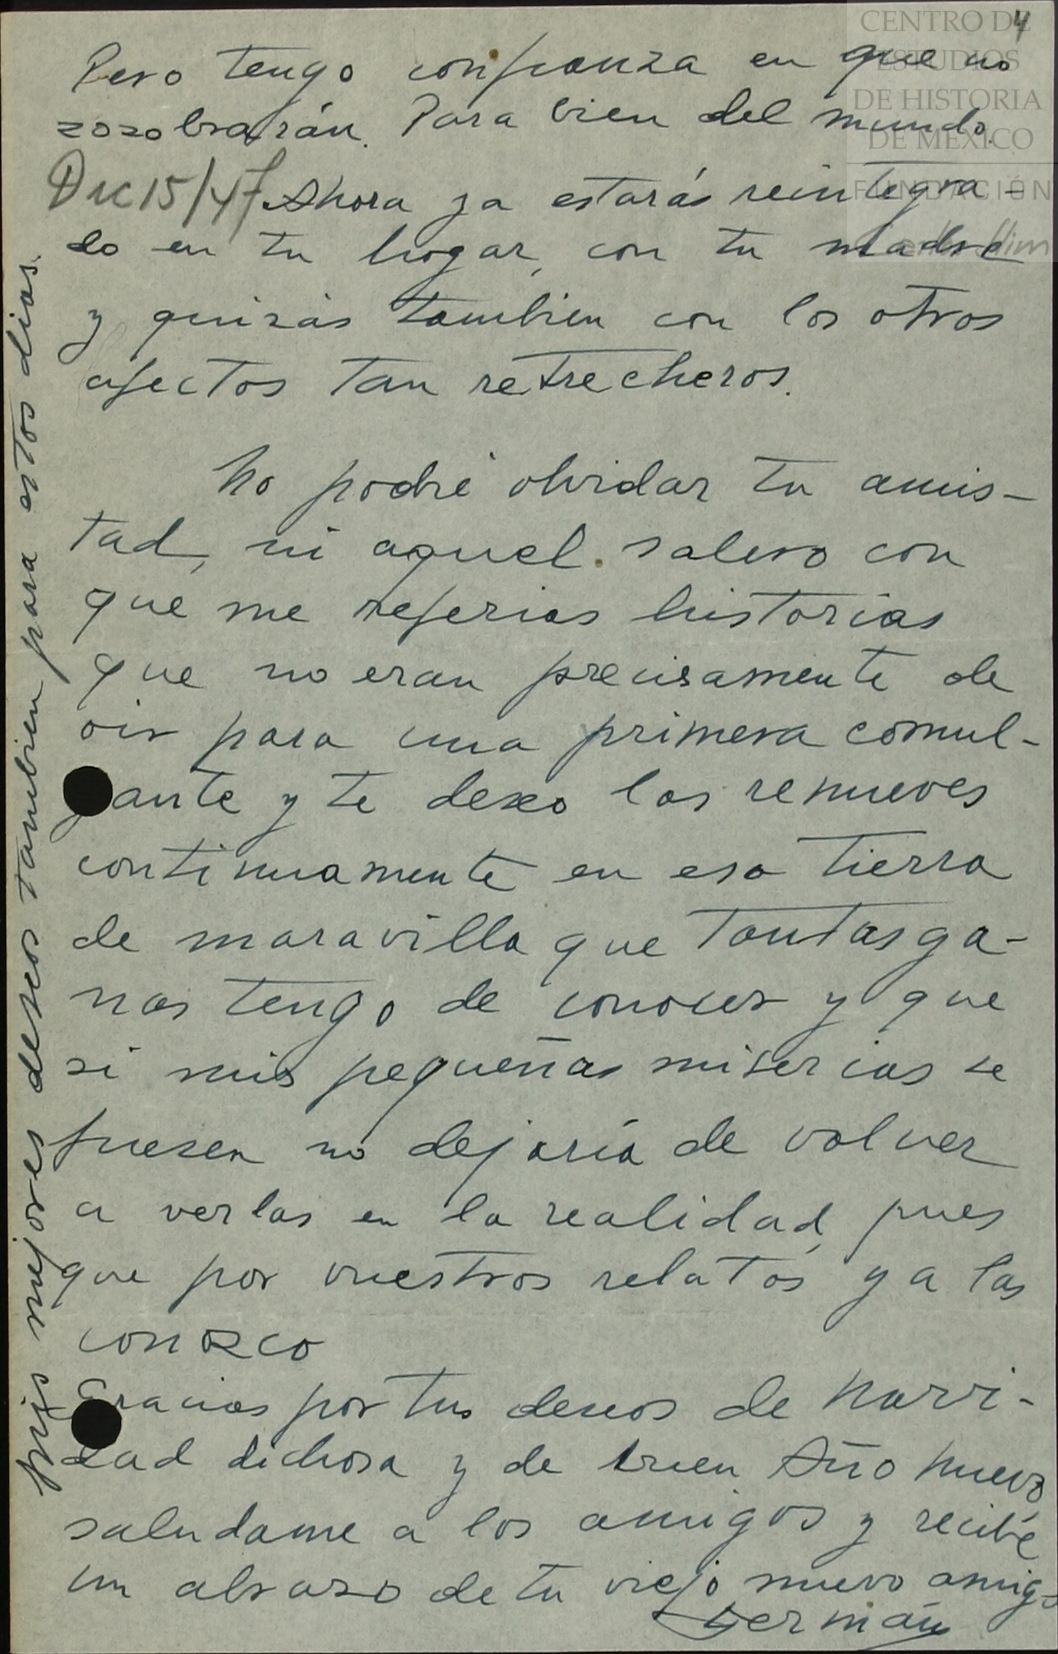 4
CENTRO DE
ESTUDIOS
DE HISTORIA
DE MÉXICO
FUNDACIÓN
Pero tengo confianza en que no
zozobrarán. Para bien del mundo.
Dic 15/47 Ahora ya estarás reintegra-
do en tu hogar, con tu madre
y quizás tambien con los otros
afectos tan retrecheros.
No podré olvidar tu amis-
tad, ni aquel salero con
que me referias historias
que no eran precisamente de
oir para una primera comul-
gante y te deseo las renueves
continuamente en esa tierra
de maravilla que tantas ga-
nas tengo de conocer y que
si mis pequeñas miserias se
fuesen no dejaría de volver
a verlas en la realidad, pues
que por vuestros relatos ya las
conozco
Gracias por tus deseos de Navi-
dad dichosa y de buen Año nuevo
saludame a los amigos y recibe
un abrazo de tu viejo nuevo amigo
Germán
mis mejores deseos tambien para estos dias.